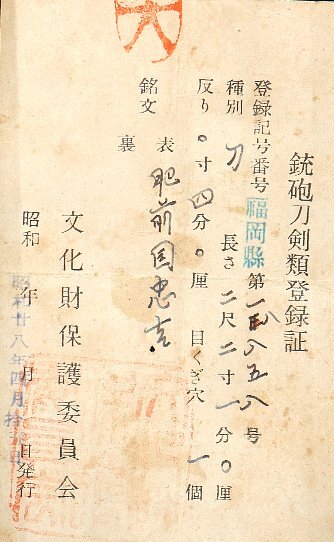 大
銃砲刀剣類登録証
登録記号番号 福岡縣 第一八八五八号
種別 刀 長さ 二尺二寸一分〇厘
反り 〇寸四分〇厘 目くぎ穴 一個
銘文 表 肥前国忠吉
裏
文化財保護委員会
昭和 年 月 日発行
昭和廿八年四月拾